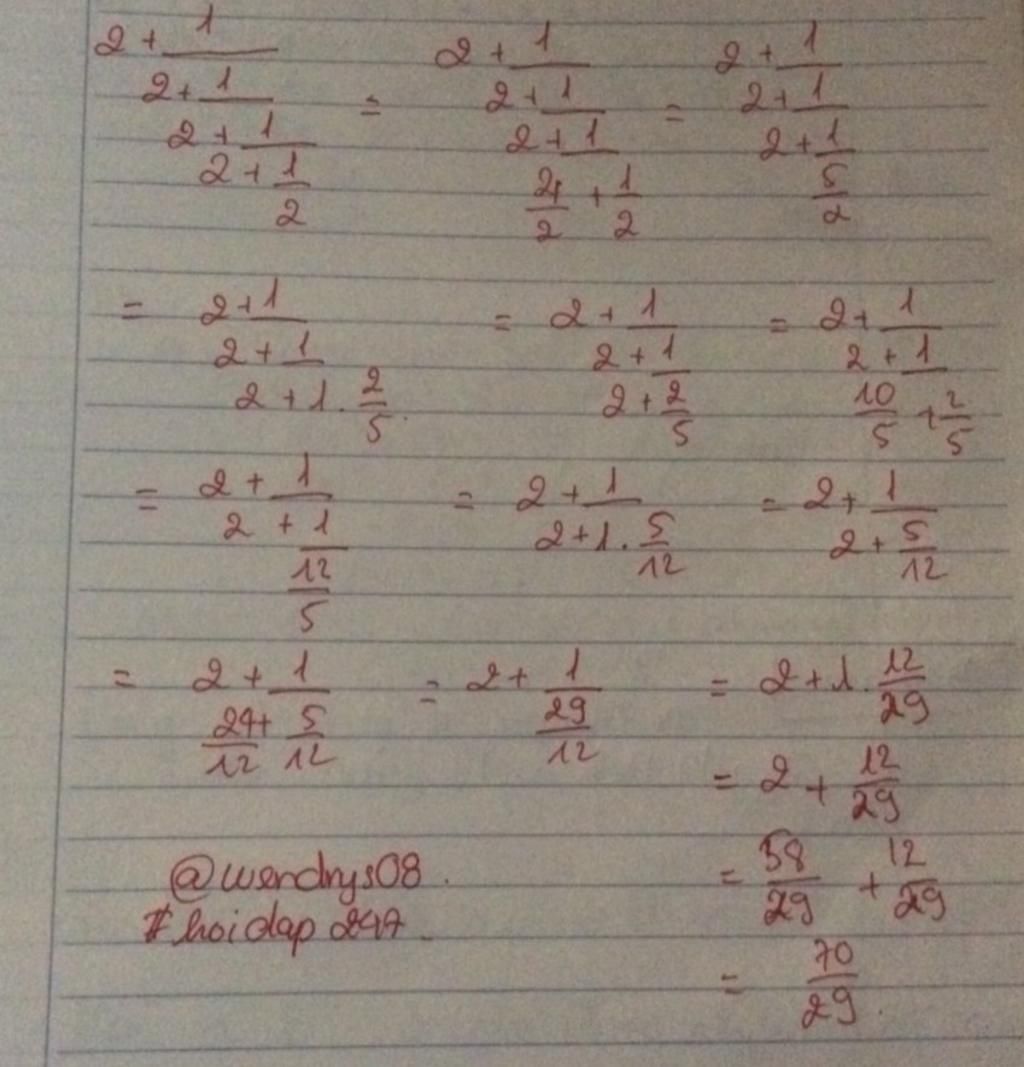 2 + 1/(2 + 1/(2 + 1/(2 + 1/2))) = 2 + 1/(2 + 1/(2 + 1/(4/2 + 1/2))) = 2 + 1/(2 + 1/(2 + 1/(5/2)))
= 2 + 1/(2 + 1/(2 + 1 . 2/5)) = 2 + 1/(2 + 1/(2 + 2/5)) = 2 + 1/(2 + 1/(10/5 + 2/5))
= 2 + 1/(2 + 1/(12/5)) = 2 + 1/(2 + 1 . 5/12) = 2 + 1/(2 + 5/12)
= 2 + 1/(24/12 + 5/12) = 2 + 1/(29/12) = 2 + 1 . 12/29
= 2 + 12/29
@wendrys08 .
= 58/29 + 12/29
# hoidap 247 .
= 70/29 .